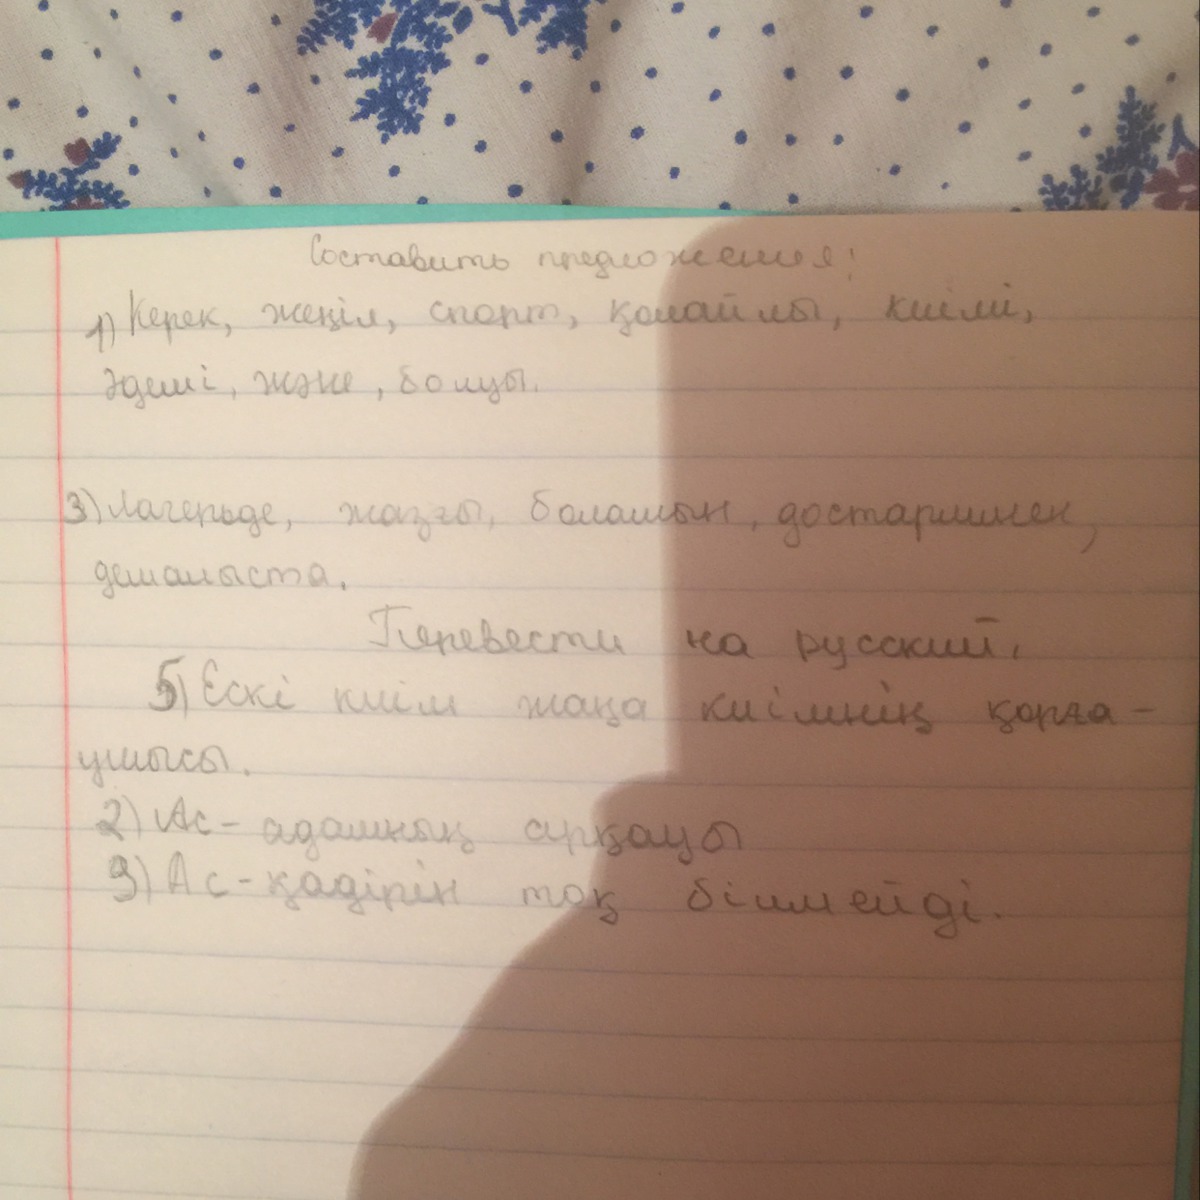 Составить предложения:
1) Керек, жеңіл, спорт, қолайлы, киімі,
әдемі, және, болуы.
3) Лагерьде, жазғы, боламын, достарыммен,
демалыста.
Перевести на русский.
5) Ескі киім жаңа киімнің қорға-
ушысы.
2) Ас - адамның арқауы
3) Ас - қадірін тоқ білмейді.